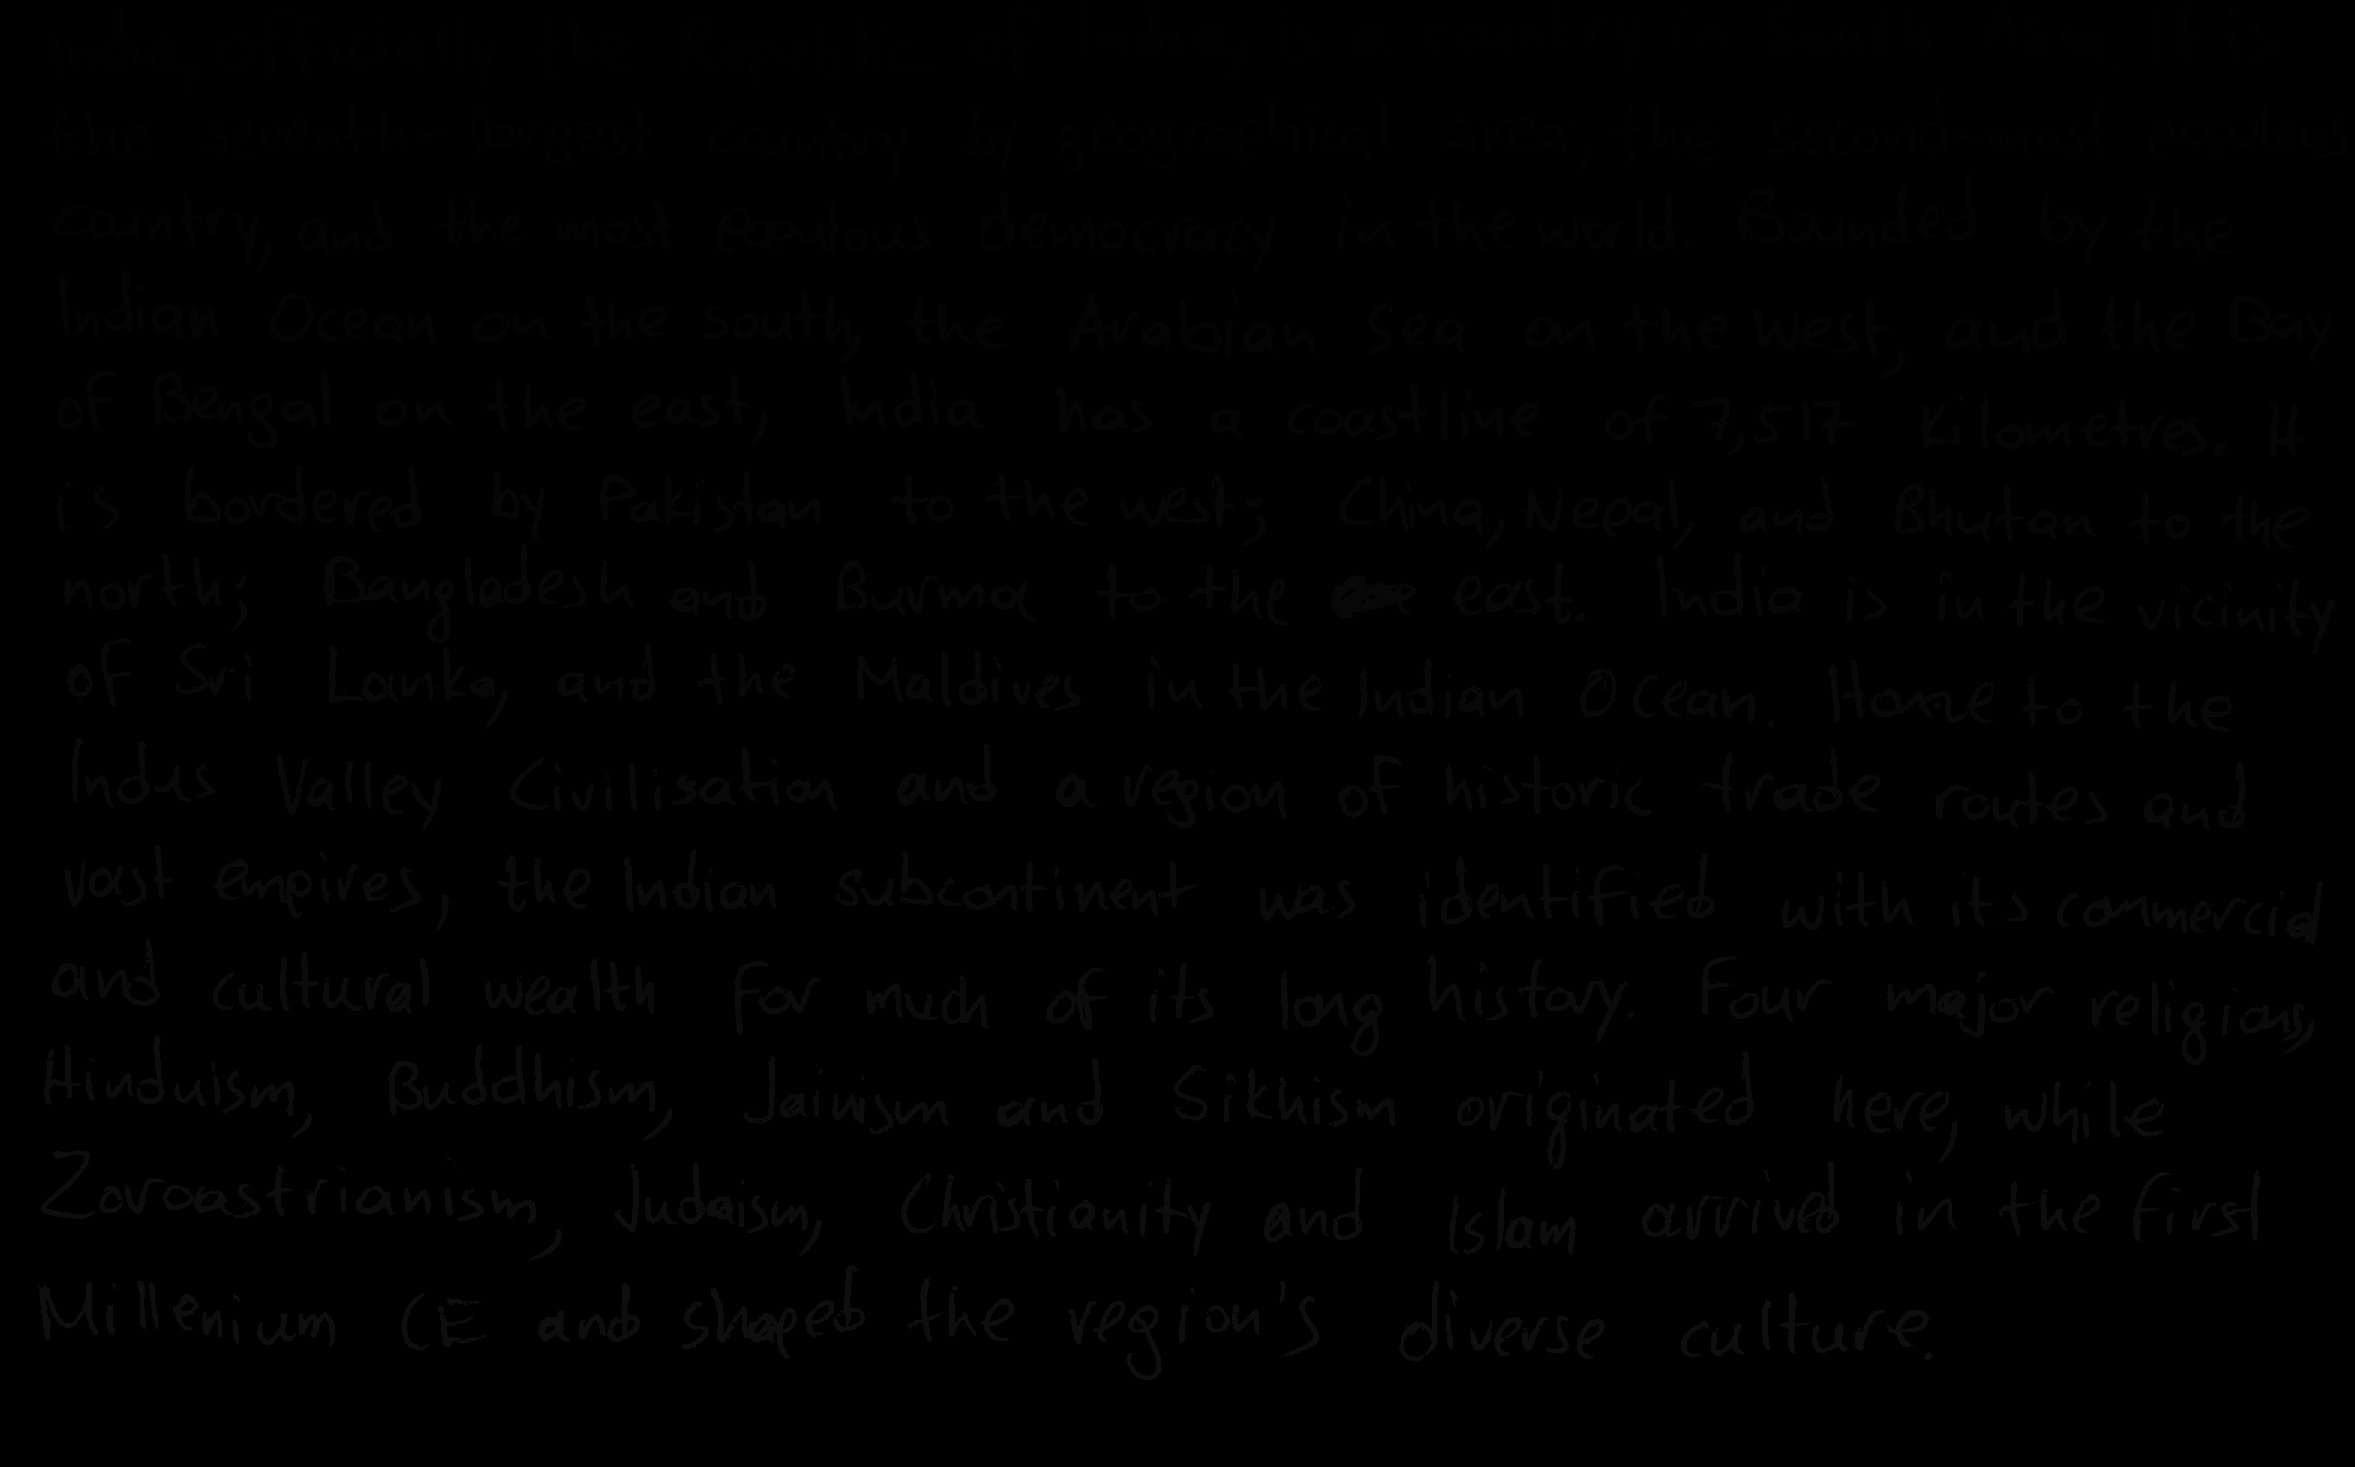 India, officially the Republic of India, is a country in South Asia. It is
the seventh-largest country by geographical area, the second-most populous
country, and the most populous democracy in the world. Bounded by the
Indian Ocean on the south, the Arabian Sea on the west, and the Bay
of Bengal on the east, India has a coastline of 7,517 kilometres. It
is bordered by Pakistan to the west; China, Nepal, and Bhutan to the
north; Bangladesh and Burma to the east. India is in the vicinity
of Sri Lanka, and the Maldives in the Indian Ocean. Home to the
Indus Valley Civilisation and a region of historic trade routes and
vast empires, the Indian subcontinent was identified with its commercial
and cultural wealth for much of its long history. Four major religions,
Hinduism, Buddhism, Jainism and Sikhism originated here, while
Zoroastrianism, Judaism, Christianity and Islam arrived in the first
Millenium CE and shaped the region's diverse culture.